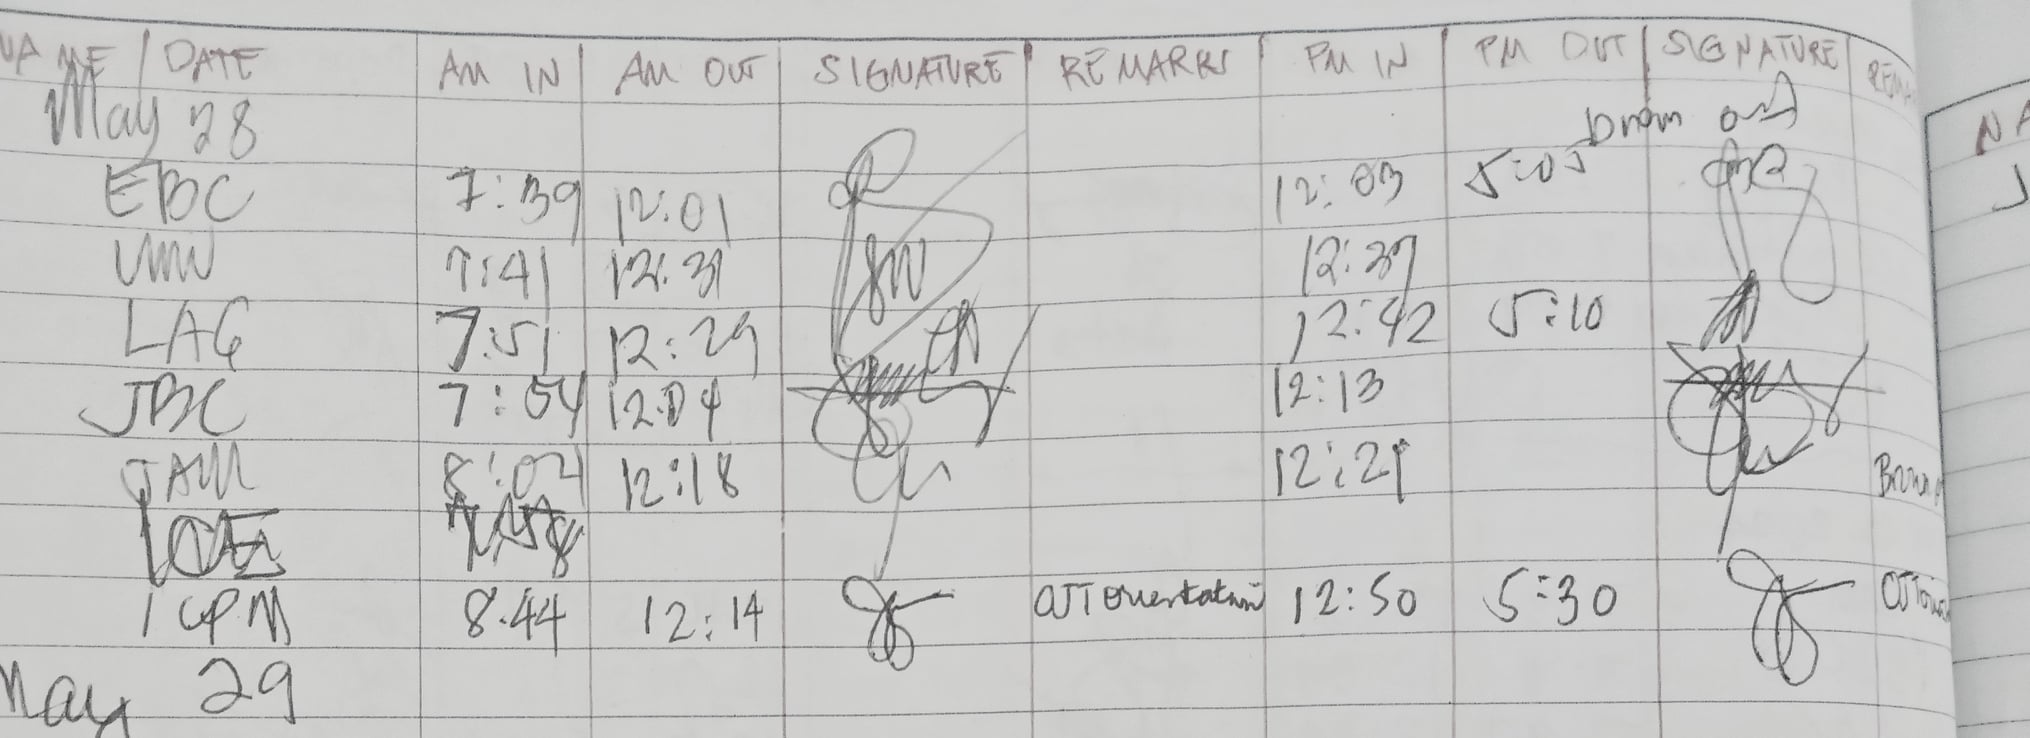 NAME / DATE AM IN AM OUT SIGNATURE REMARKS PM IN PM OUT SIGNATURE
May 28
EBC 7:39 12:01 12:03 5:05
7:41 12:31 12:37
LAG 7:51 12:29 12:42 5:10
JBC 7:54 12:04 12:13
JAM 8:02 12:18 12:21
8:44 12:14 OJT orientation 12:50 5:30
May 29